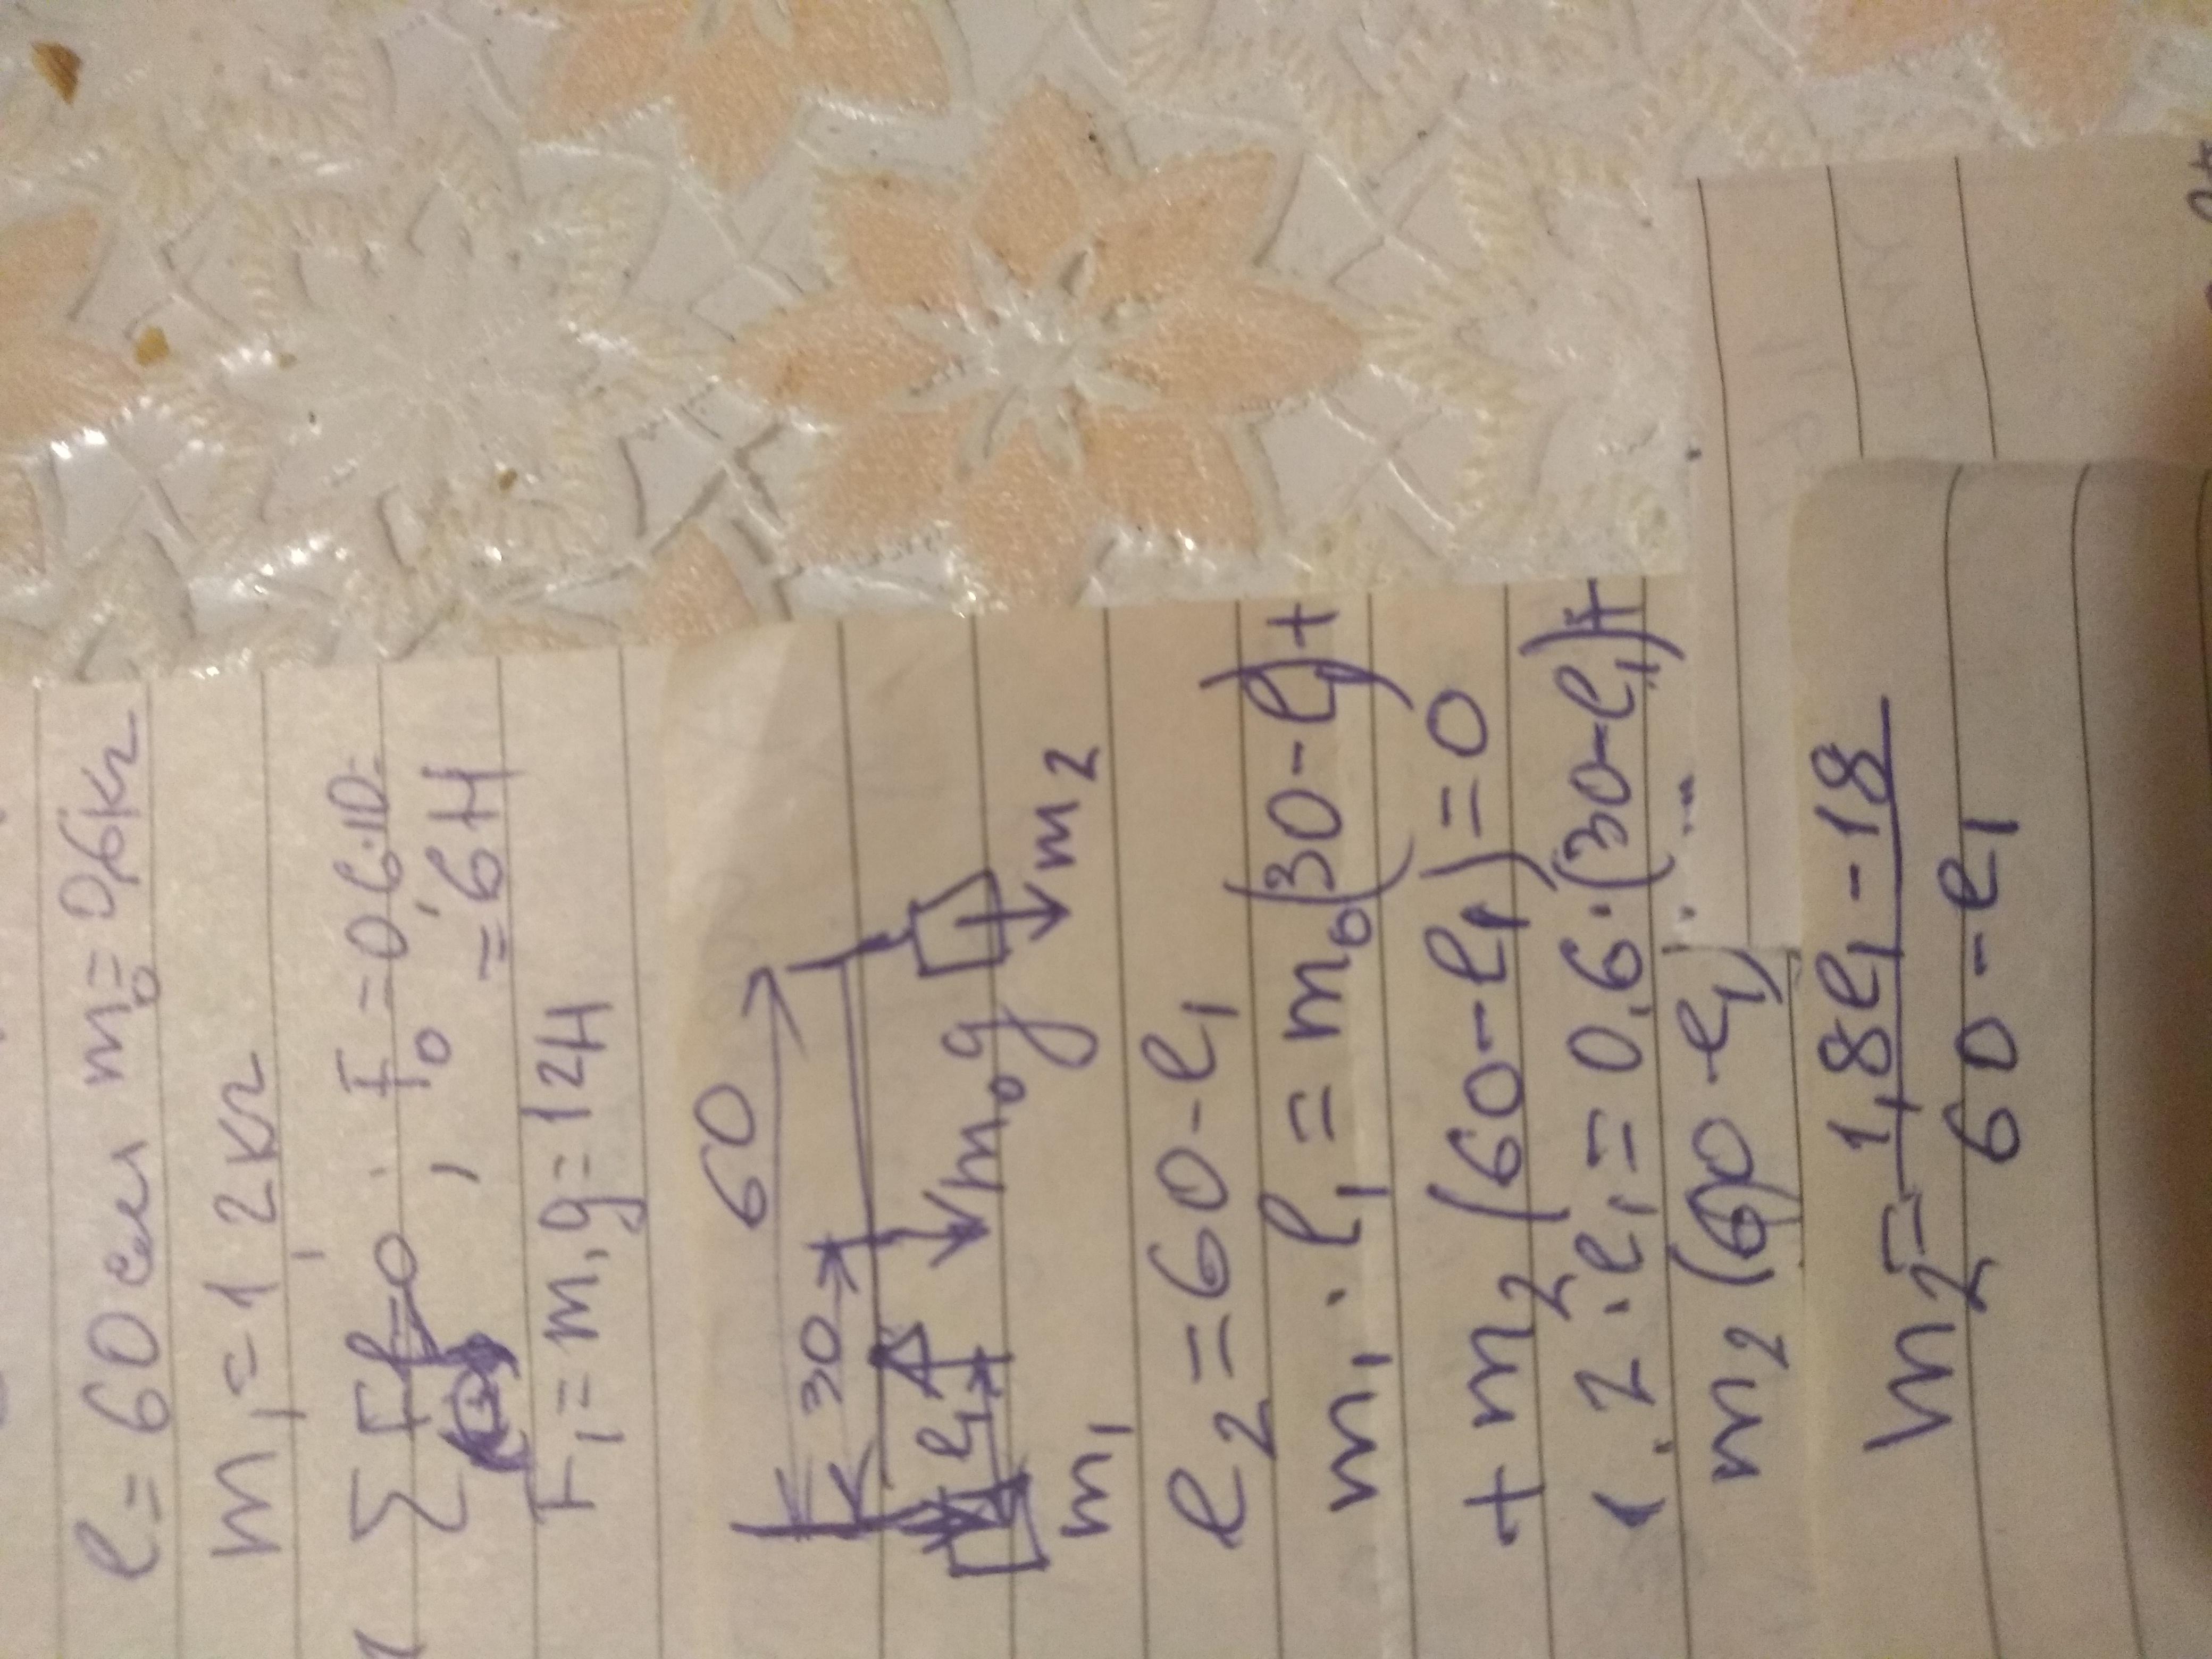 l = 60 см m₀ = 0,6кг
m₁ = 1,2кг
F₀ = 0,6·10=
= 6Н
F₁ = m₁g = 12Н
60
30
l₁
m₀g
m₂
m₁
l₂ = 60 - l₁
m₁·l₁ = m₀(30-l₁)+
+ m₂(60-l₁) = 0
1,2·l₁ = 0,6·(30-l₁)+
m₂(60-l₁)
m₂ = 1,8l₁ - 18
60 - l₁